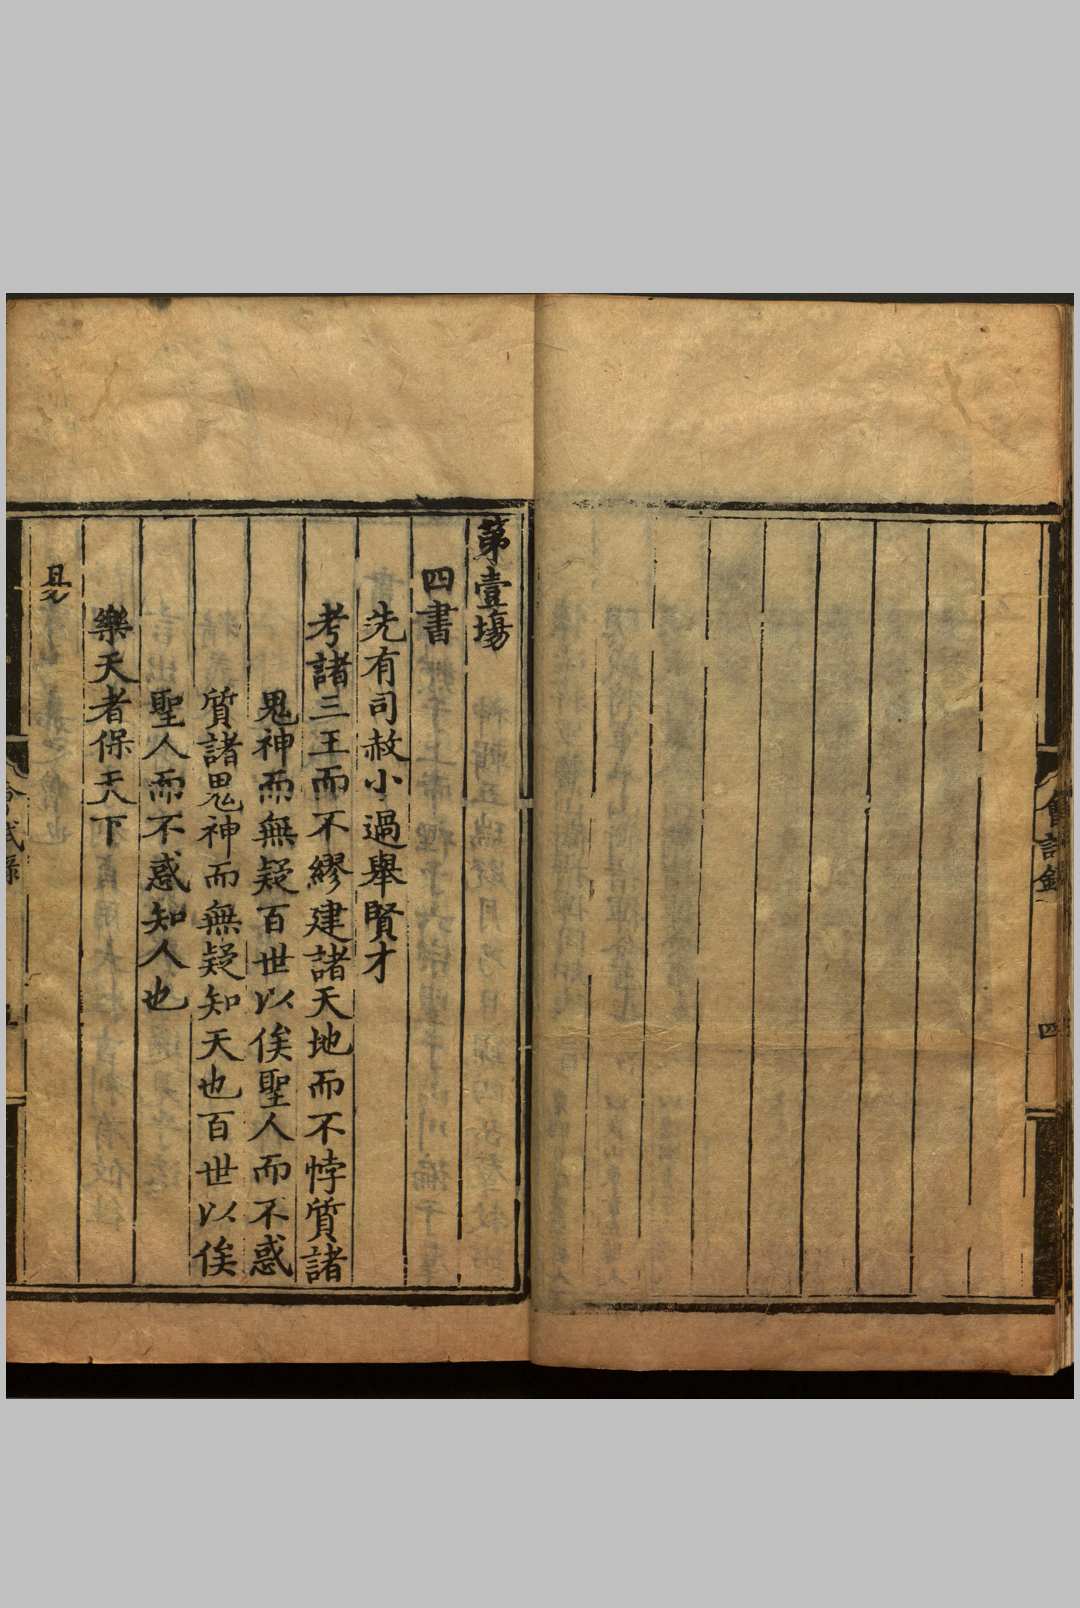 會試錄
四
第壹場
四書
先有司赦小過舉賢才
考諸三王而不繆建諸天地而不悖質諸
鬼神而無疑百世以俟聖人而不惑
質諸鬼神而無疑知天也百世以俟
聖人而不惑知人也
樂天者保天下
易
會試錄
五